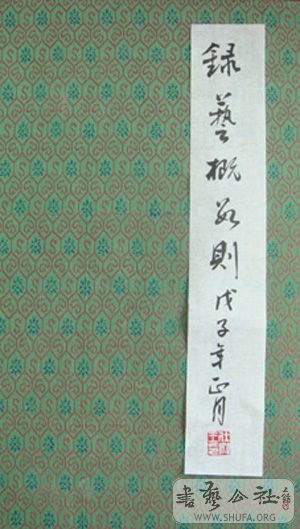 録藝概數則戊子年正月
書藝公社
WWW.SHUFA.ORG